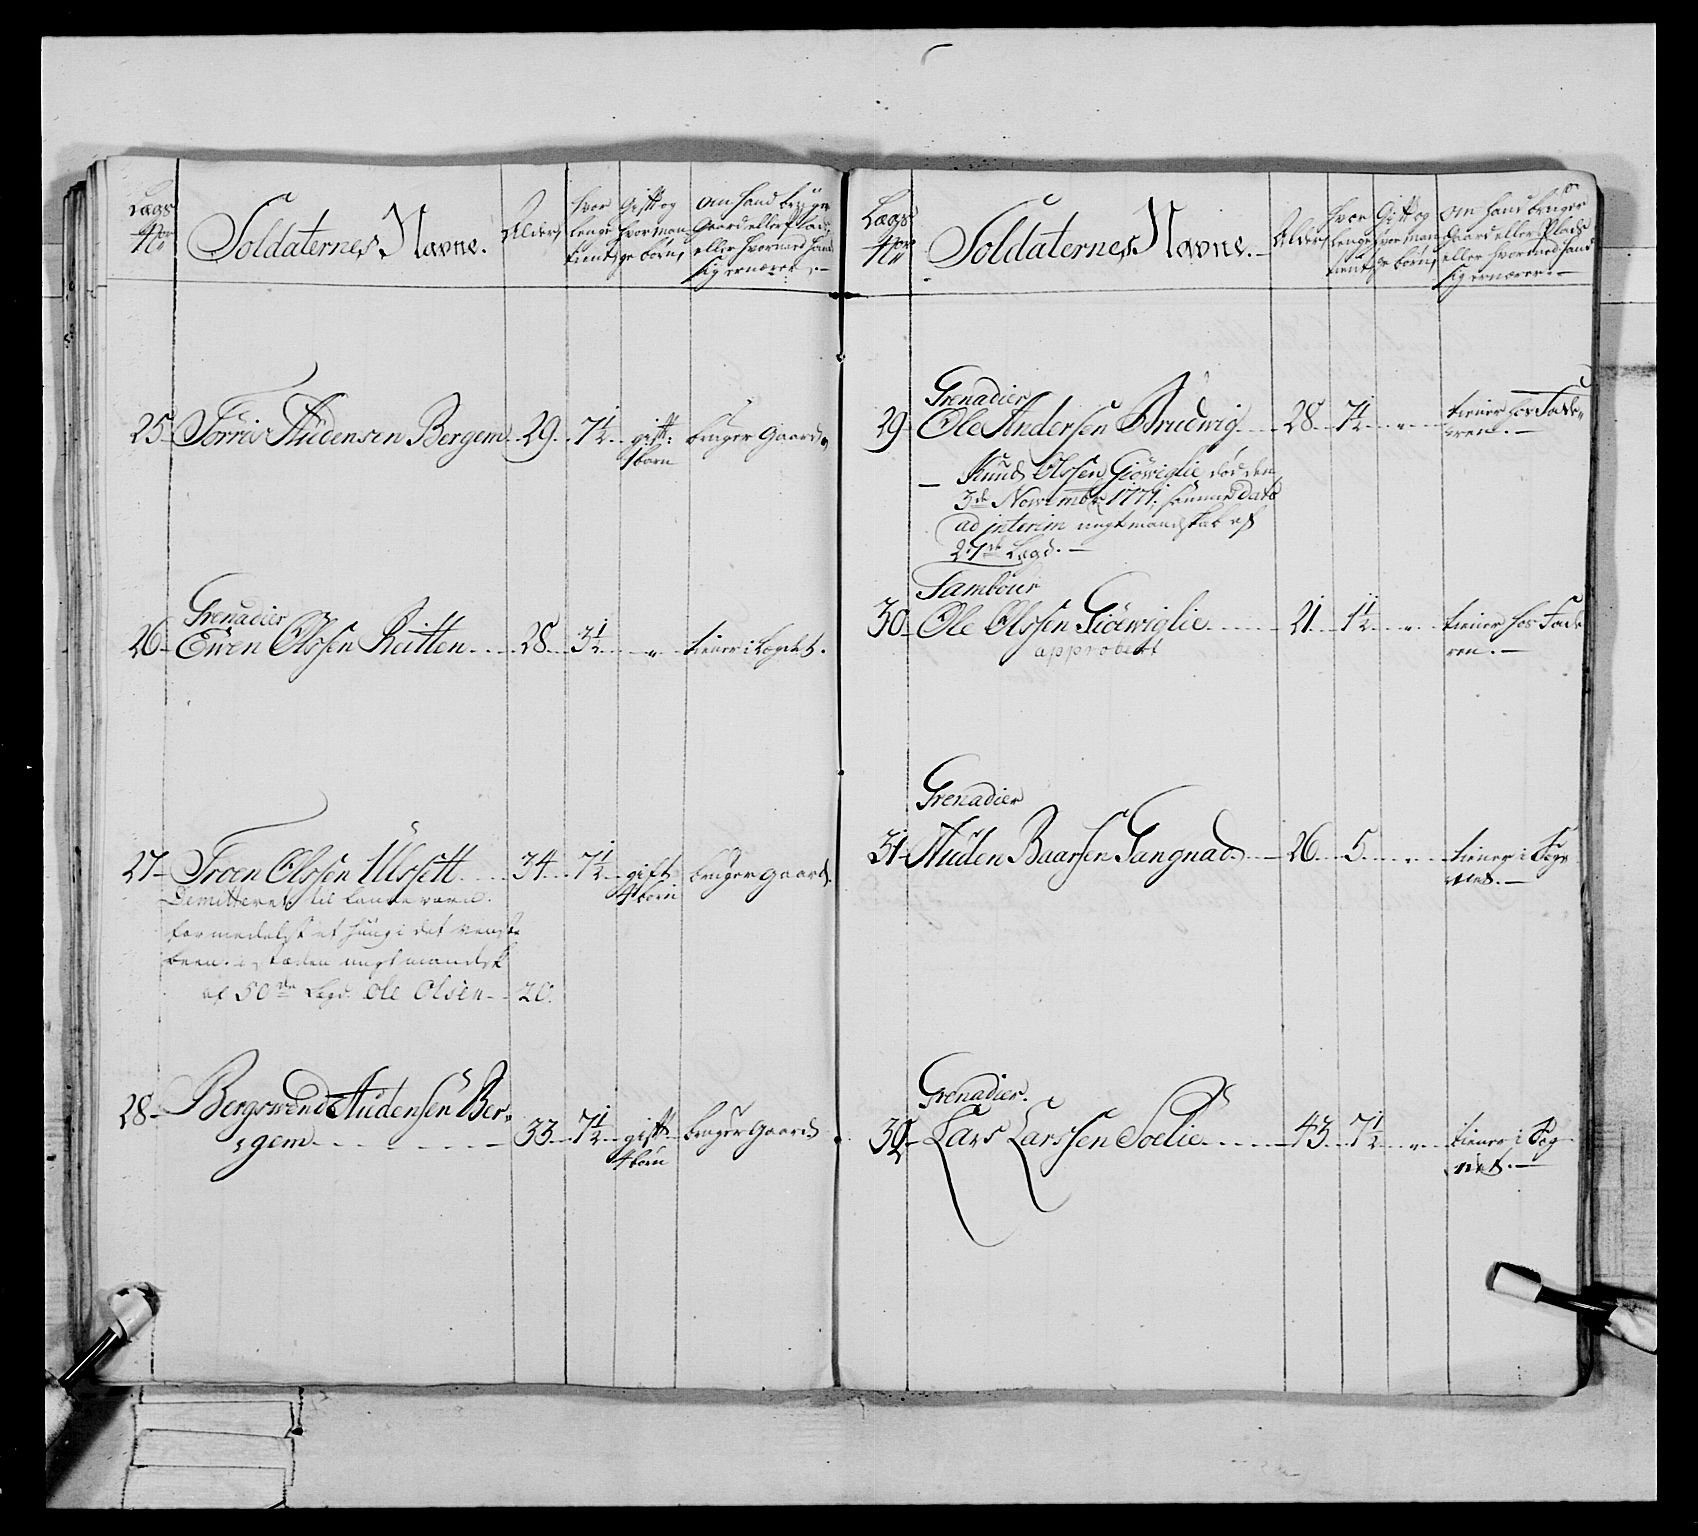 Lægs No
Soldaternes Navne.
Alder
hvor længe tient
Gift og hvor mange børn
om hand bruger Gaard eller Plads eller hvormed hand sig ernærer.
25 Torris Audensen Bergem 29 7½ gift: 1 børn bruger Gaard
Grenadier
26 Ewen Olssen Reitten 28 3½ " tiener i Lægdet.
27 Troen Olssen Ulsett 34 7½ gift 4 børn bruger gaard.
Demitteret til landeværn.
formedelst et hug i det venste
been. i stæden ungt mandsk
af 50de Lægd. Ole Olsen 20.
28 Bergswend Audensen Ber-
gem 33 7½ gift 4 børn bruger Gaard
Lægs No
Soldaternes Navne.
Alder
hvor længe tient
Gift og hvor mange børn
om hand bruger Gaard eller Plads eller hvormed hand sig ernærer.
Grenadier
29 Ole Andersen Brudwig 28 7½ " tiener hos Fade-
ren.
Knud Olssen Giöwiglie död den
3de Novembr 1771, samme dato
ad interim ungt mandskab af
27de Lægd.
Tambour
30 Ole Olssen Giöewiglie 21 1½ " tiener hos Fade
ren.
approbert
Grenadier
31 Auden Baarsen Gangnad 26 5 " tiener i Sog
net.
Grenadier.
32 Lars Larssen Soelie 43 7½ " tiener i Sog
net.